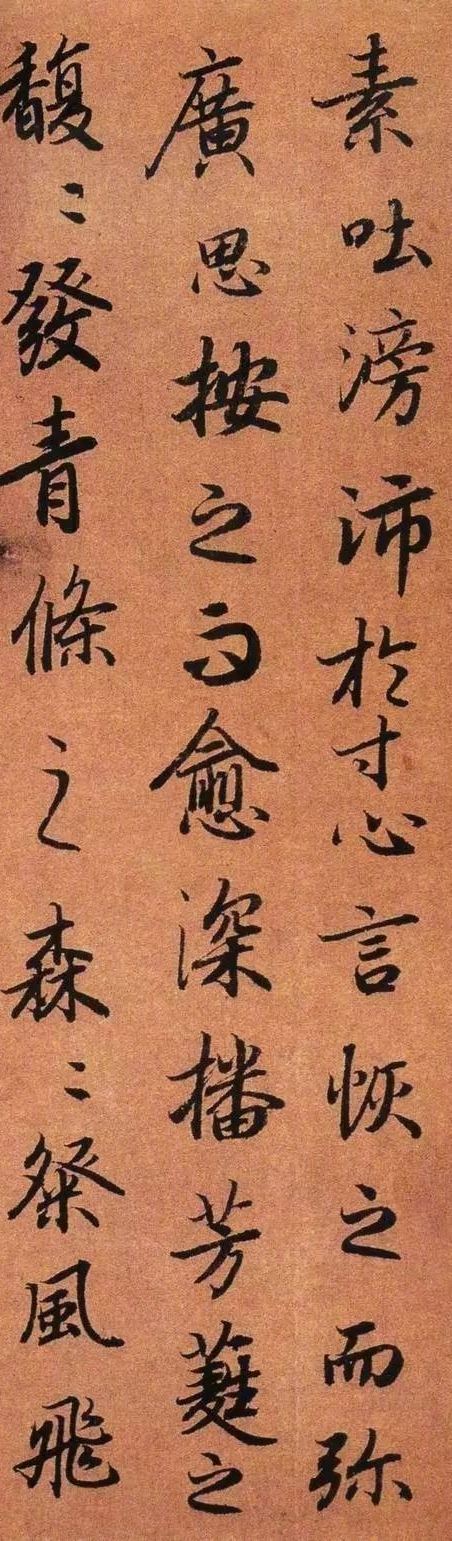 素吐滂沛於寸心言恢之而弥
廣思按之而愈深播芳蕤之
馥〻發青條之森〻粲風飛